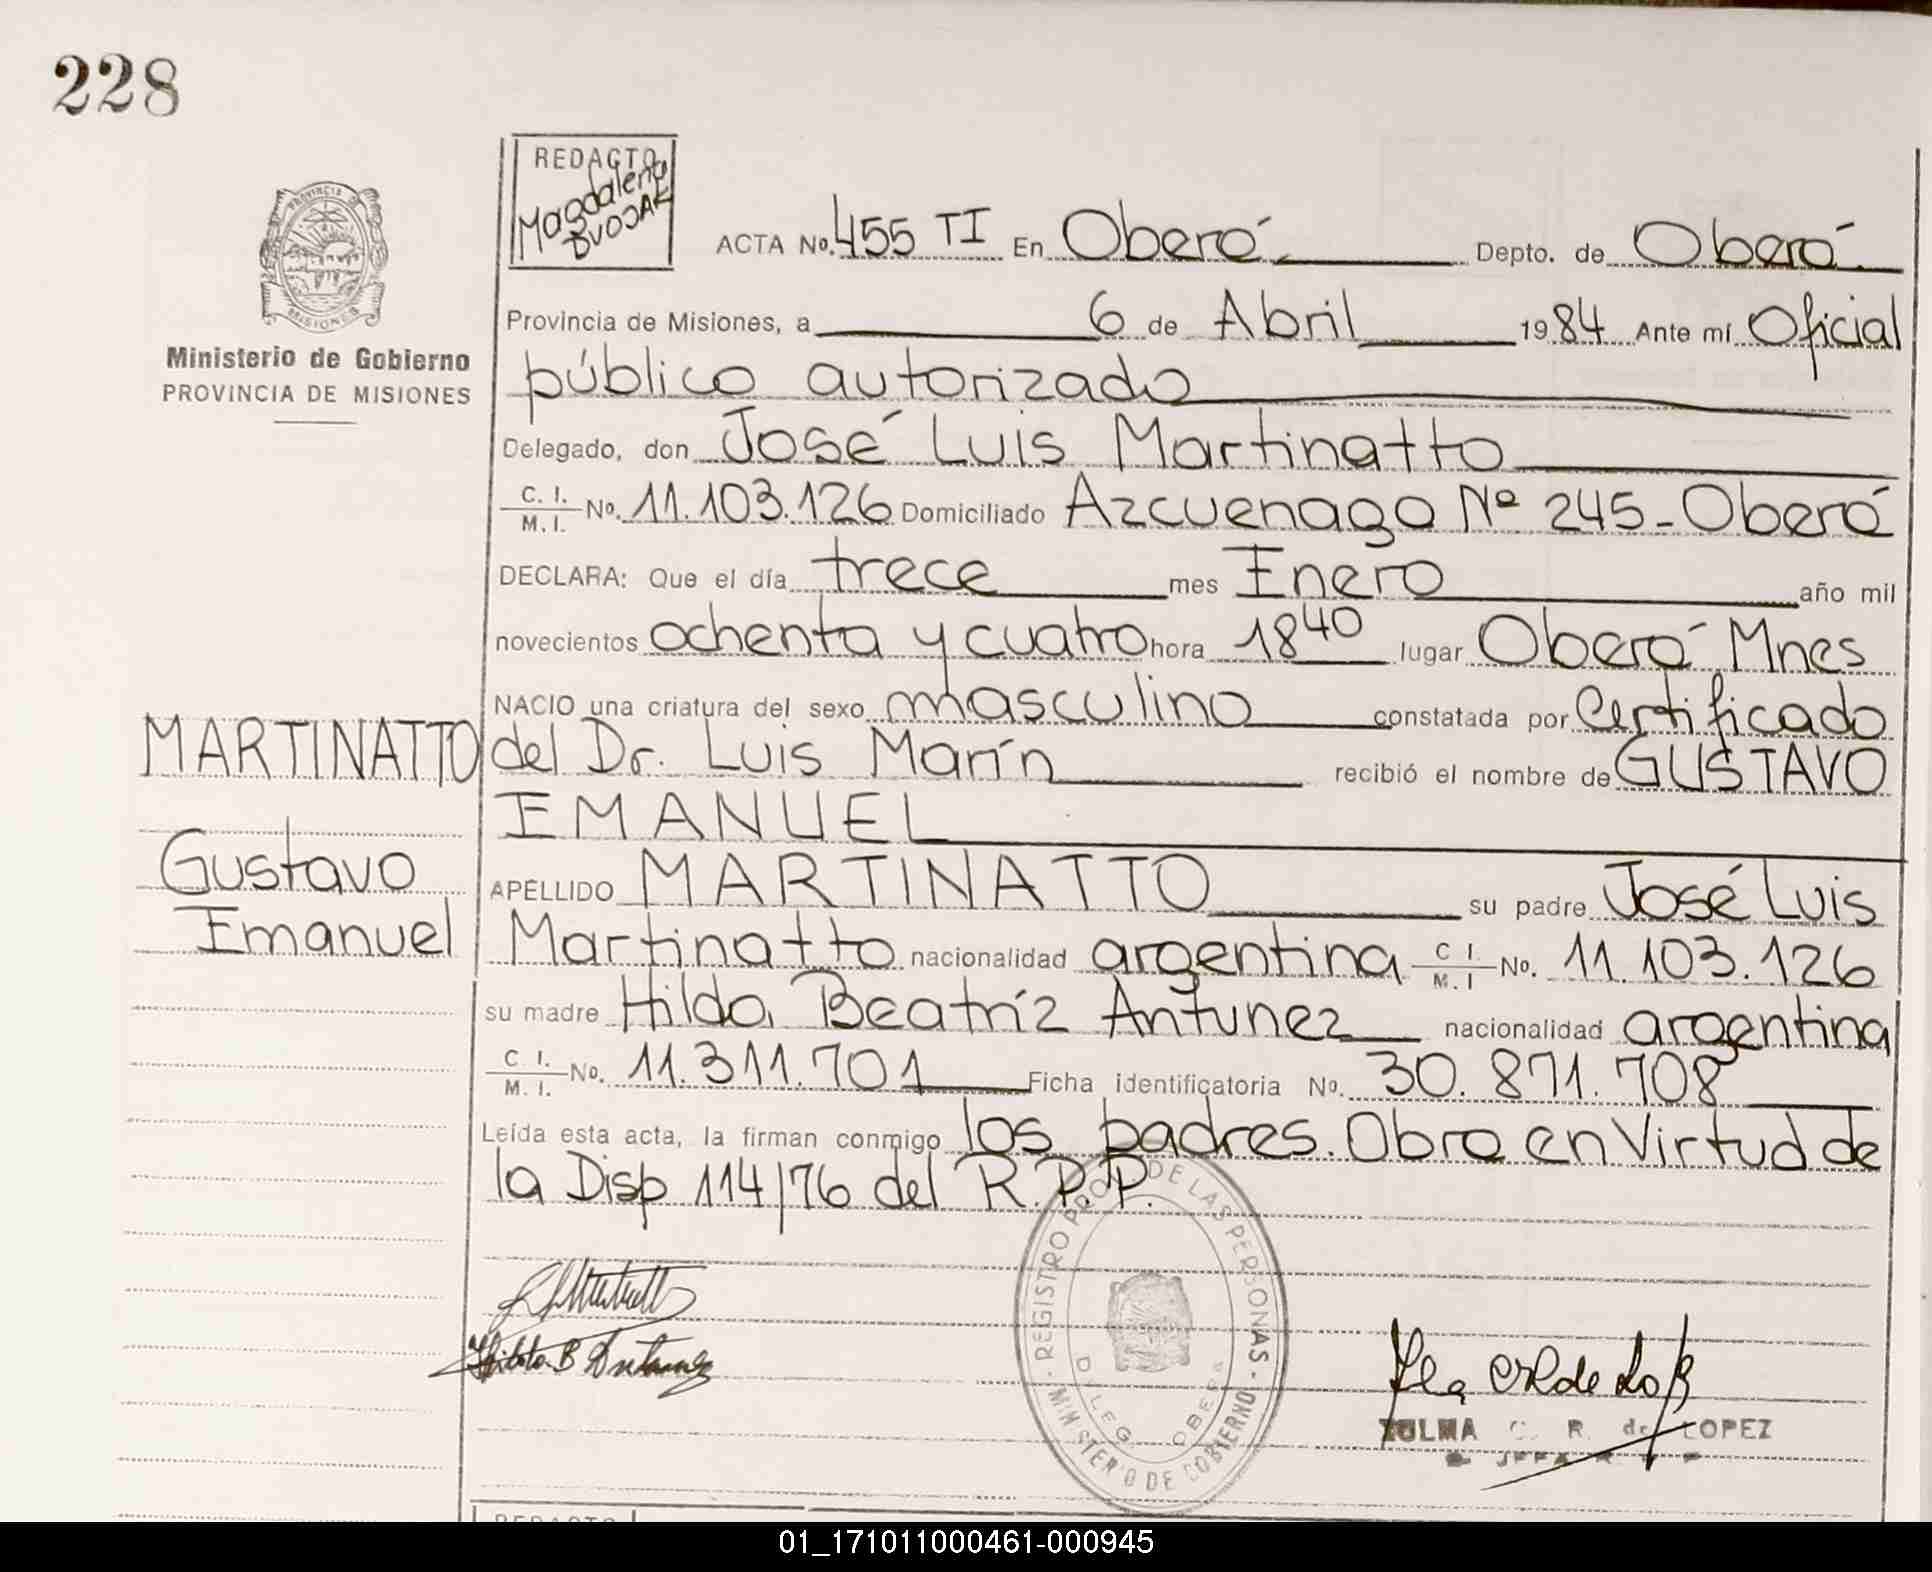 228
REDACTO
Magdalena
DVOJAK
PROVINCIA DE
MISIONES
Ministerio de Gobierno
PROVINCIA DE MISIONES
ACTA No. 455 TI En Oberá Depto. de Oberá
Provincia de Misiones, a 6 de Abril 1984 Ante mí Oficial
público autorizado
Delegado, don José Luis Martinatto
C. I. / M. I. No. 11.103.126 Domiciliado Azcuenaga Nº 245 - Oberá
DECLARA: Que el día trece mes Enero año mil
novecientos ochenta y cuatro hora 18 40 lugar Oberá Mnes
NACIO una criatura del sexo masculino constatada por Certificado
del Dr. Luis Marín recibió el nombre de GUSTAVO
EMANUEL
MARTINATTO
Gustavo
Emanuel
APELLIDO MARTINATTO su padre José Luis
Martinatto nacionalidad argentina C I. / M. I No. 11.103.126
su madre Hilda Beatríz Antunez nacionalidad argentina
C I. / M. I. No. 11.311.701 Ficha identificatoria No. 30.871.708
Leída esta acta, la firman conmigo los padres. Obra en Virtud de
la Disp 114/76 del R.P.P.
REGISTRO PROV. DE LAS PERSONAS - MINISTERIO DE GOBIERNO -
DELEG. OBERA
Hilda B Antunez
ZULMA C. R. de LOPEZ
REDACTO
01_171011000461-000945